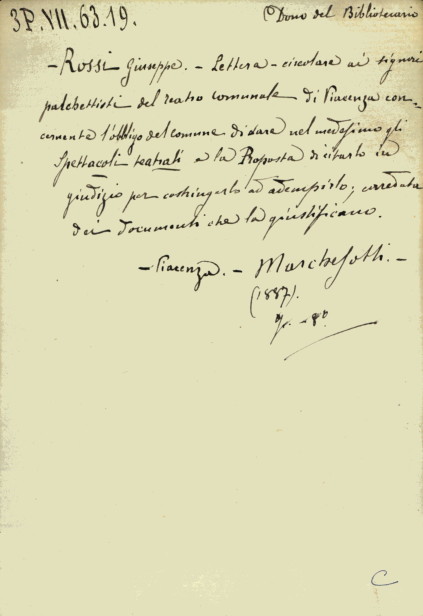 3P.VII.63.19.
Dono del Bibliotecario
- Rossi Giuseppe. - Lettera - circolare ai signori
palchettisti del teatro comunale di Piacenza con-
cernente l'obbligo del comune di dare nel medesimo gli
Spettacoli teatrali e la Proposta di citarlo in
giudizio per costringerlo ad adempirlo; corredata
dei documenti che la giustificano.
- Piacenza. - Marchesotti. -
(1887).
- 8º
C